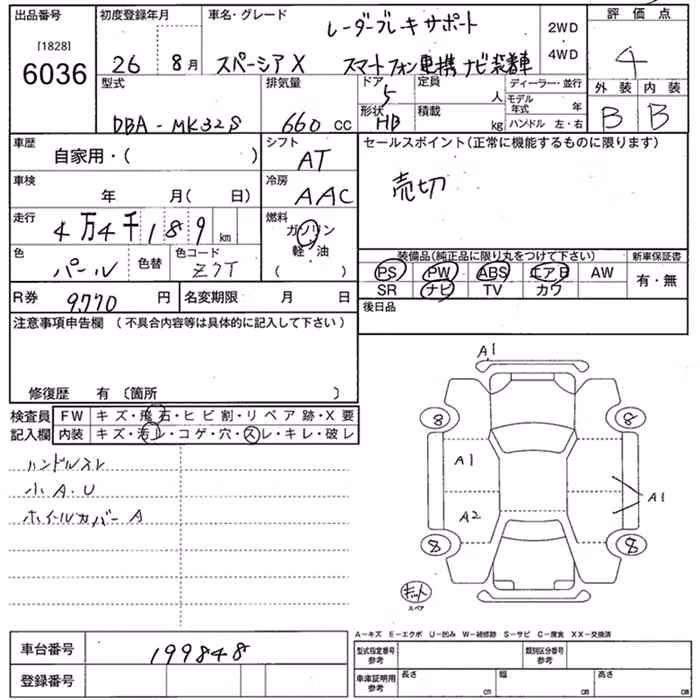 出品番号
[1828]
6036
初度登録年月
26 8月
車名・グレード
レーダーブレーキサポート
スペーシア X スマートフォン連携ナビ装着車
2WD
4WD
評価点
4
外装 内装
B B
型式
DBA-MK32S
排気量
660 CC
ドア
5
形状
HB
定員
人
積載
kg
ディーラー・並行
モデル年式 年
ハンドル 左・右
車歴
自家用・( )
シフト
AT
セールスポイント(正常に機能するものに限ります)
売切
車検
年 月( 日)
冷房
AAC
走行
4万4千189km
燃料
ガソリン
軽・油
( )
色
パール
色替
色コード
Z7T
装備品(純正品に限り丸をつけて下さい)
PS PW ABS エアB AW
SR ナビ TV カワ
新車保証書
有・無
R券
9,770 円
名変期限 月 日
後日品
注意事項申告欄 (不具合内容等は具体的に記入して下さい)
修復歴 有 〔箇所 〕
検査員
記入欄
FW キズ・飛石・ヒビ割・リペア跡・X要
内装 キズ・汚レ・コゲ・穴・スレ・キレ・破レ
ハンドルスレ
小A.U
ホイールカバーA
A1
8 8
A1
A1
A2
8 8
キット
スペア
A-キズ E-エクボ U-凹み W-補修跡 S-サビ C-腐食 XX-交換済
車台番号
199848
登録番号
型式指定番号
参考
類別区分番号
参考
車庫証明用
参考
長さ cm
幅 cm
高さ cm